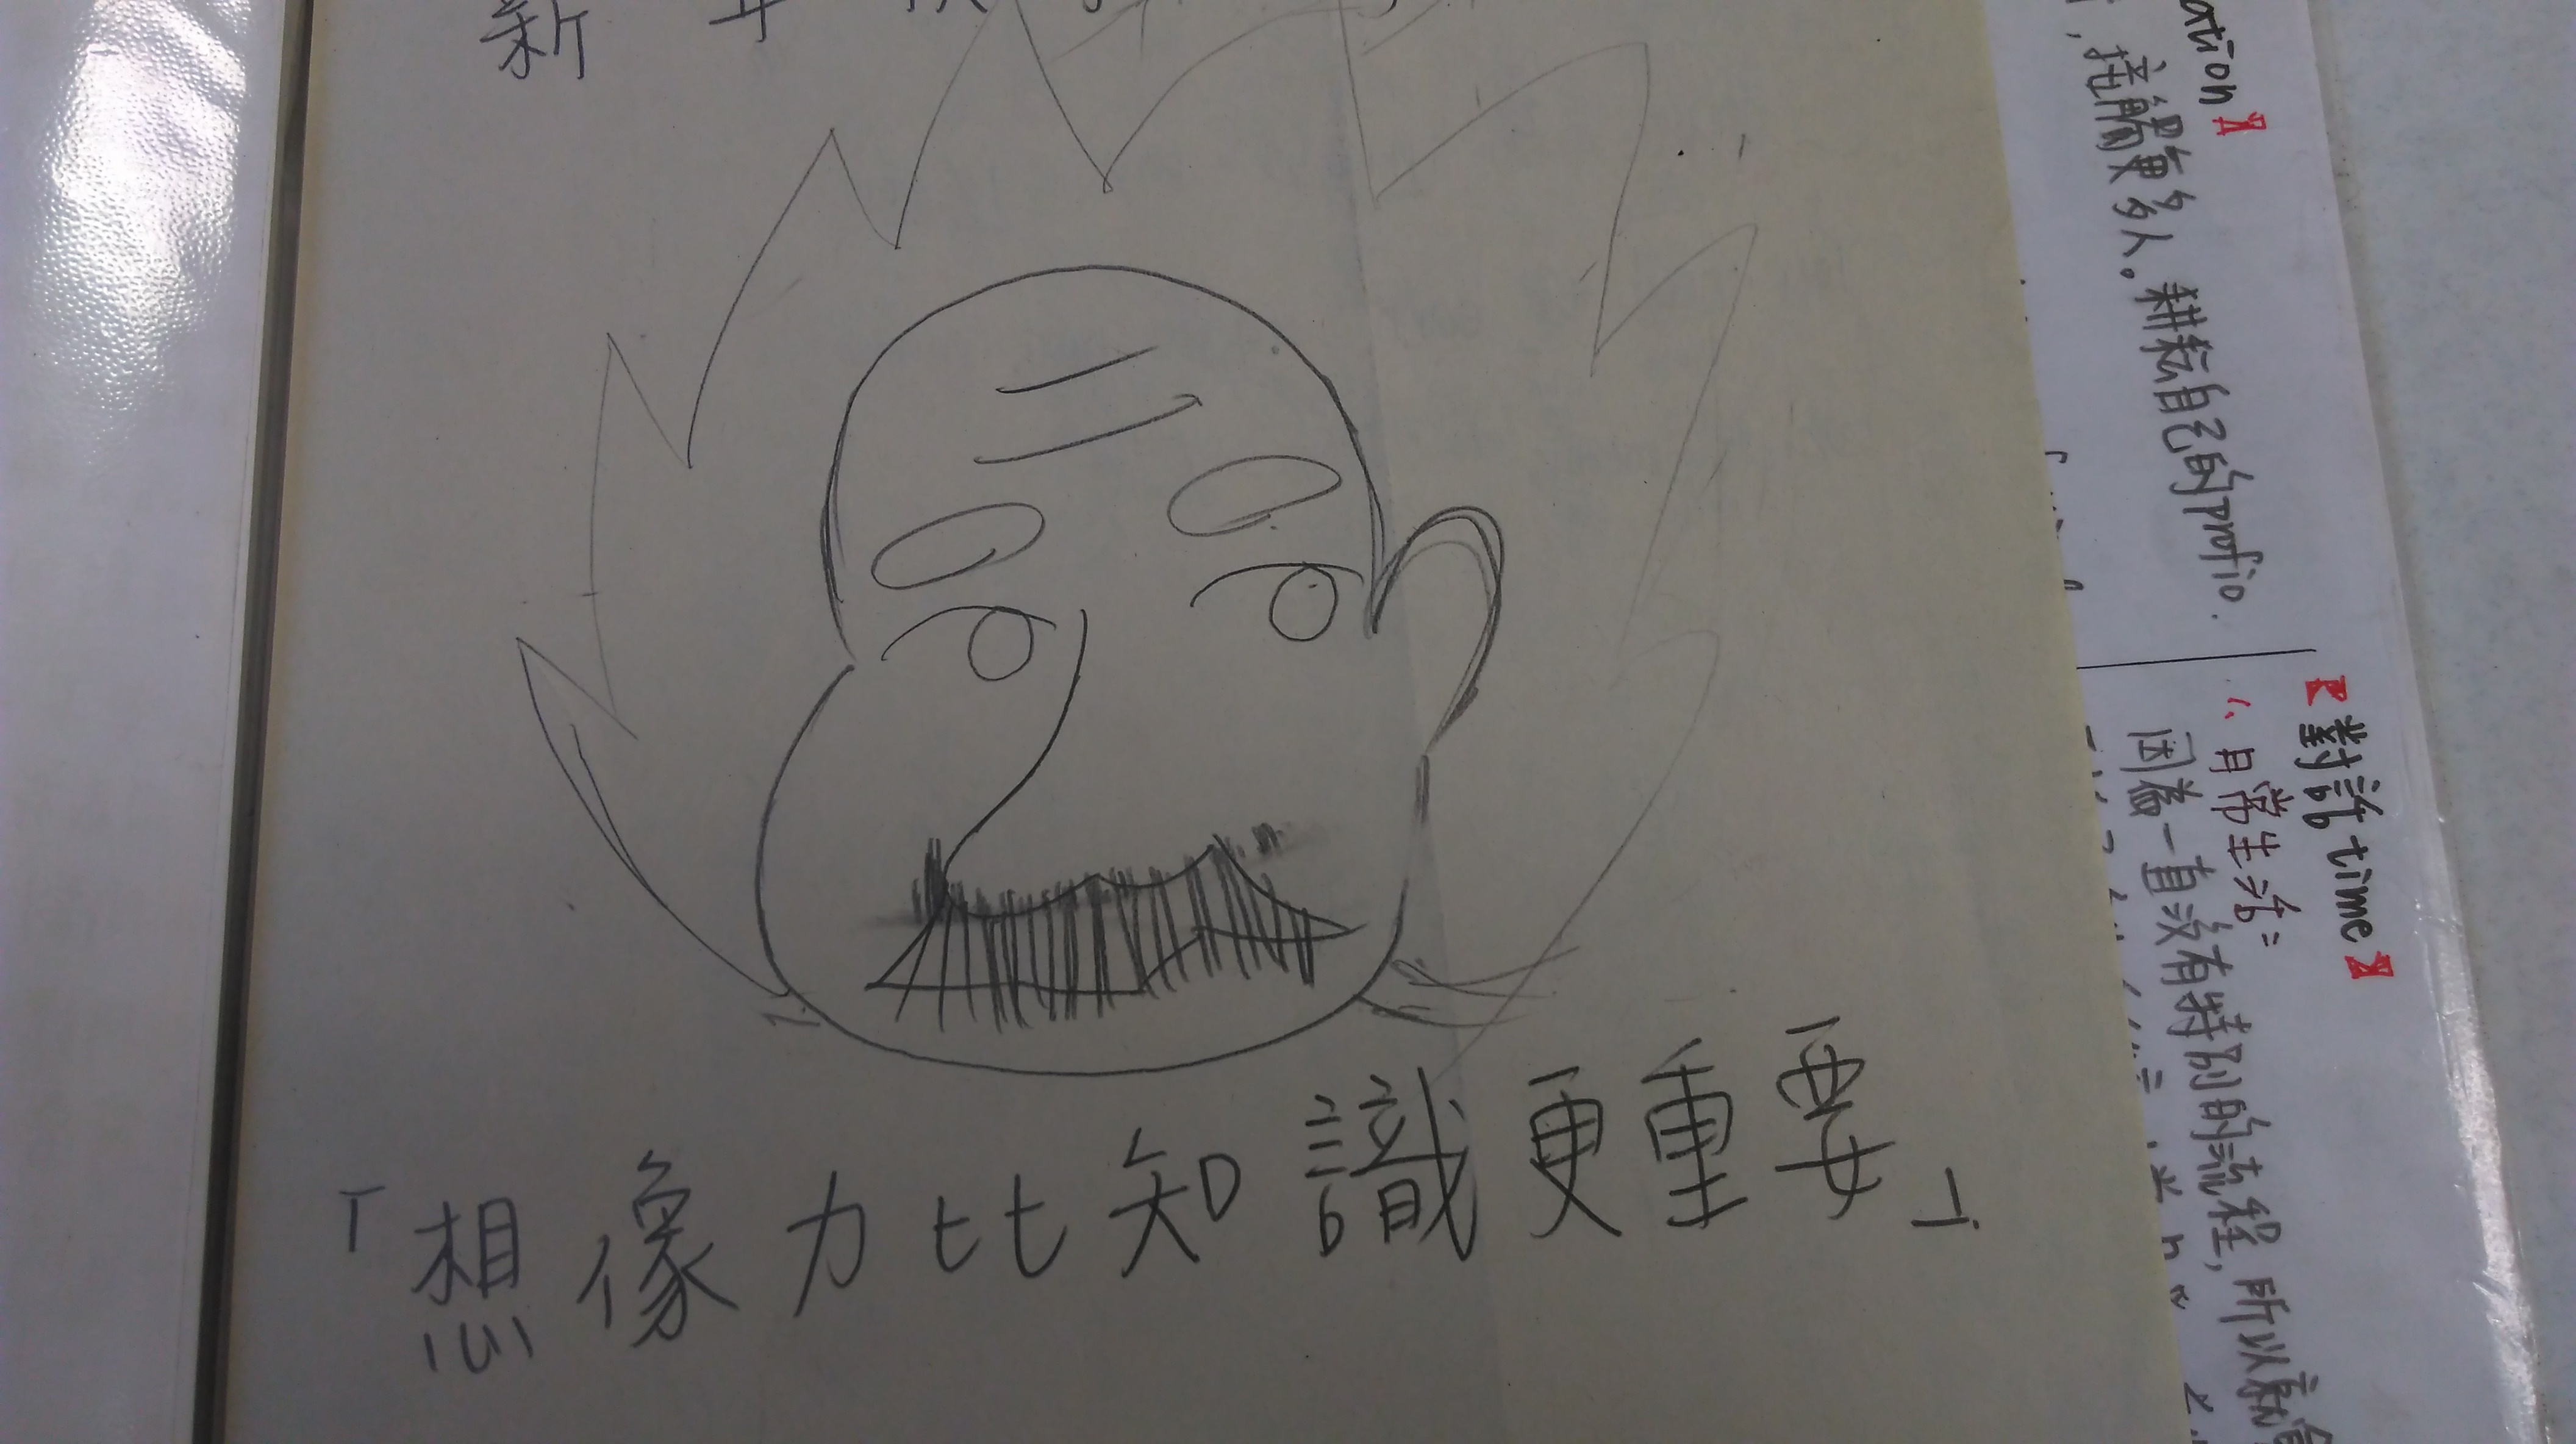 新年快
「想像力比知識更重要」
ation】
，接觸更多人。耕耘自己的profio.
【對話time】
1、日常生活：
因為一直沒有特別的流程，所以